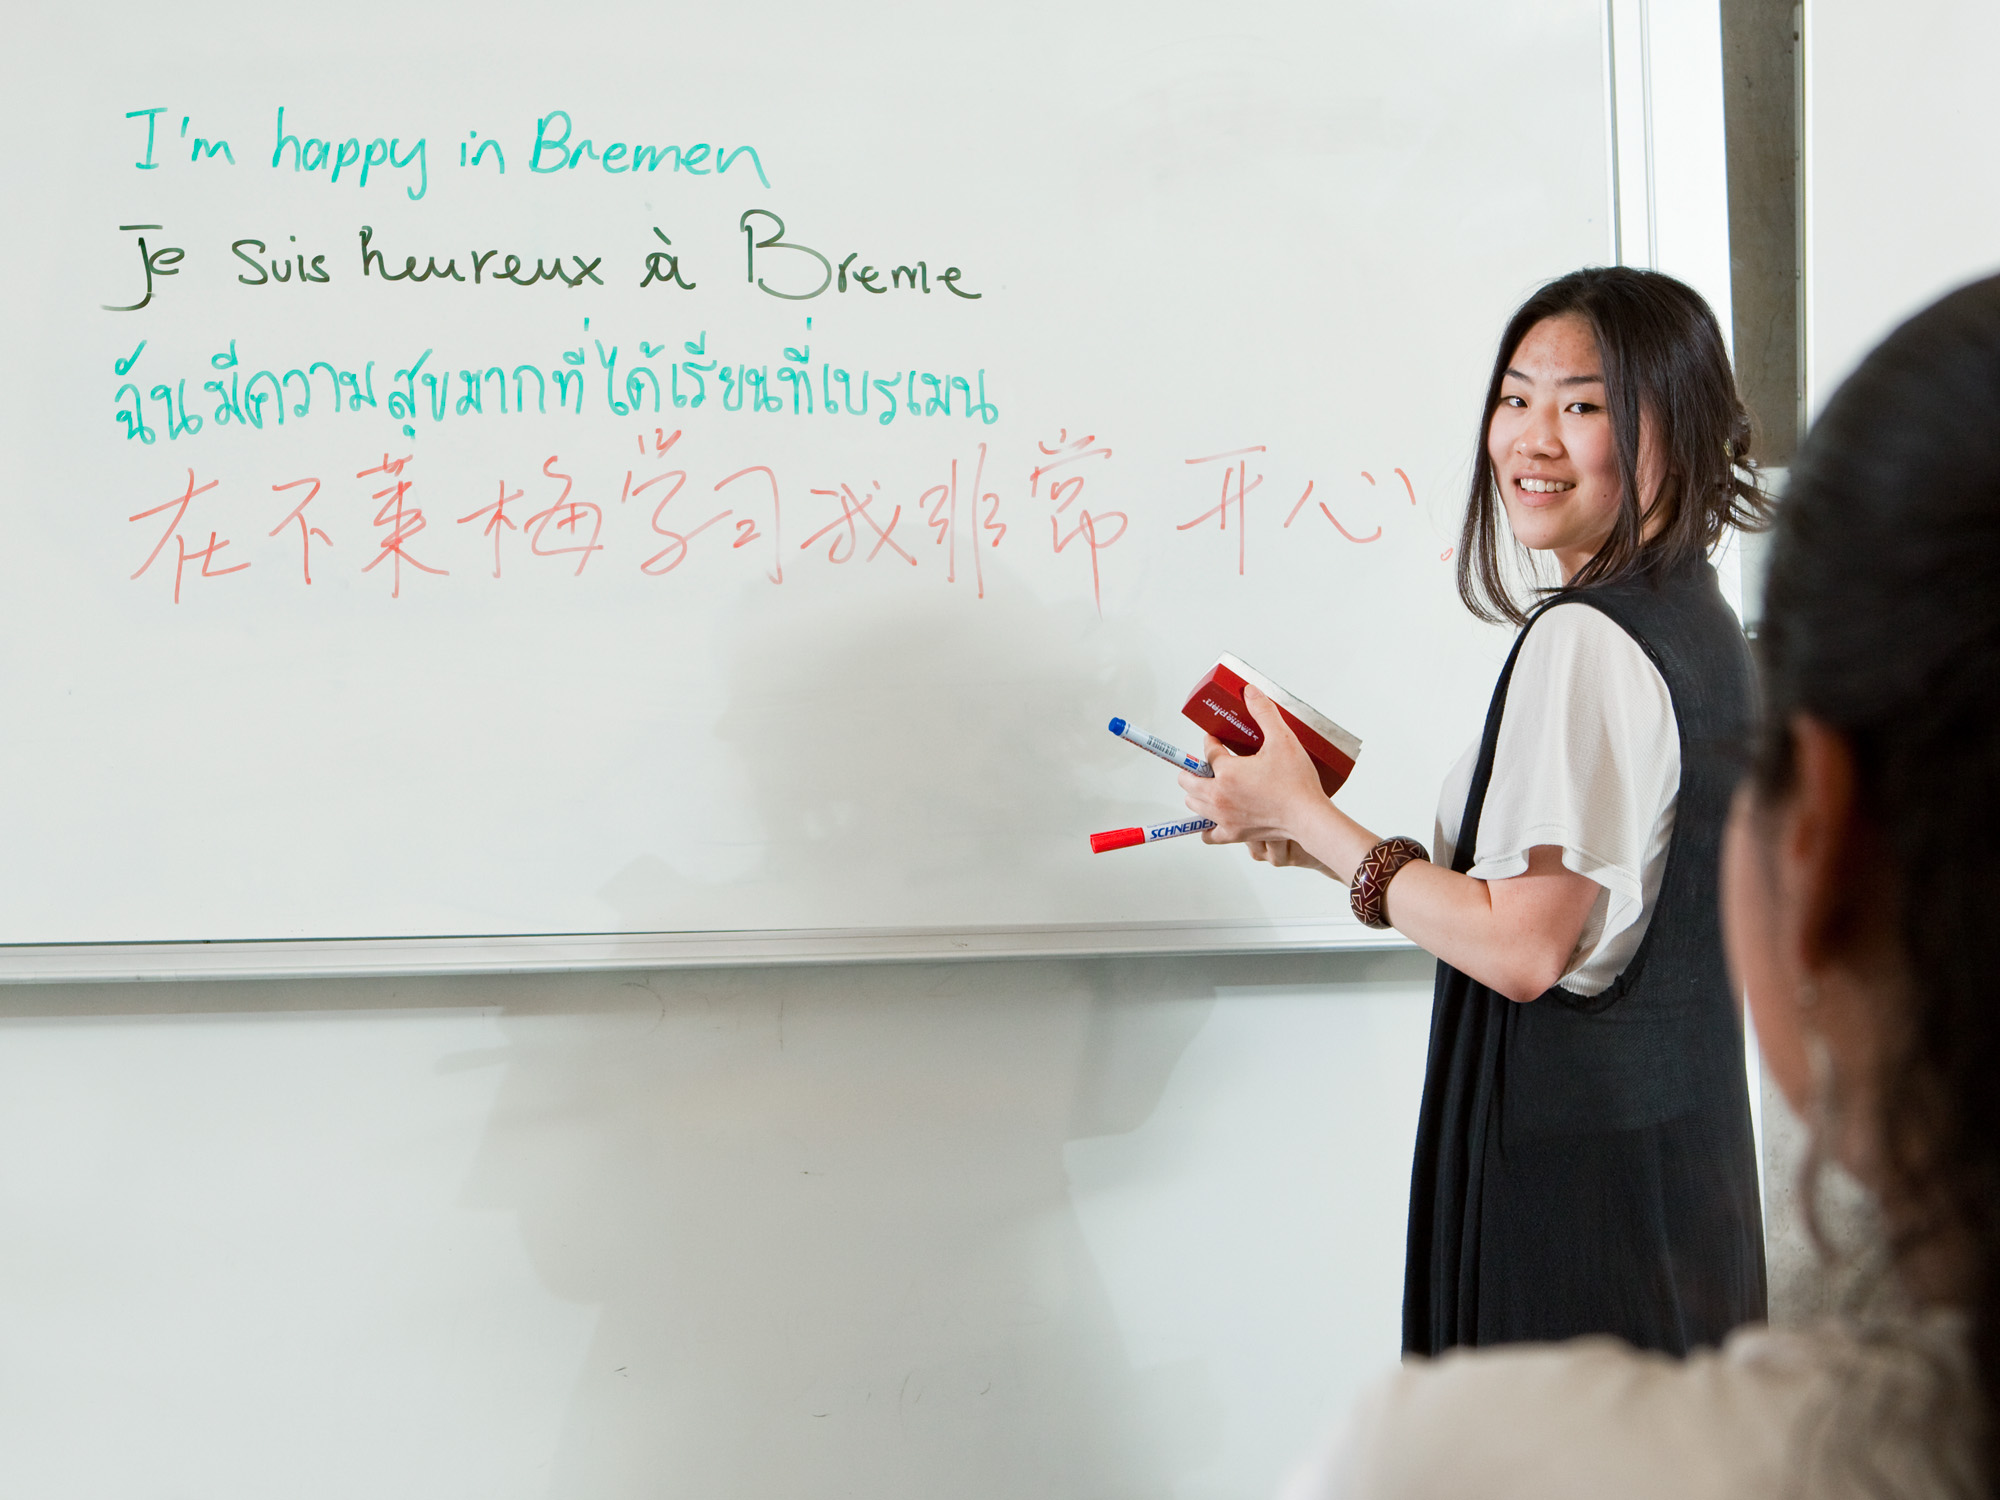 I'm happy in Bremen
Je suis heureux à Breme
ฉันมีความสุขมากที่ได้เรียนที่เบรเมน
在不莱梅学习我非常开心.
SCHNEIDER